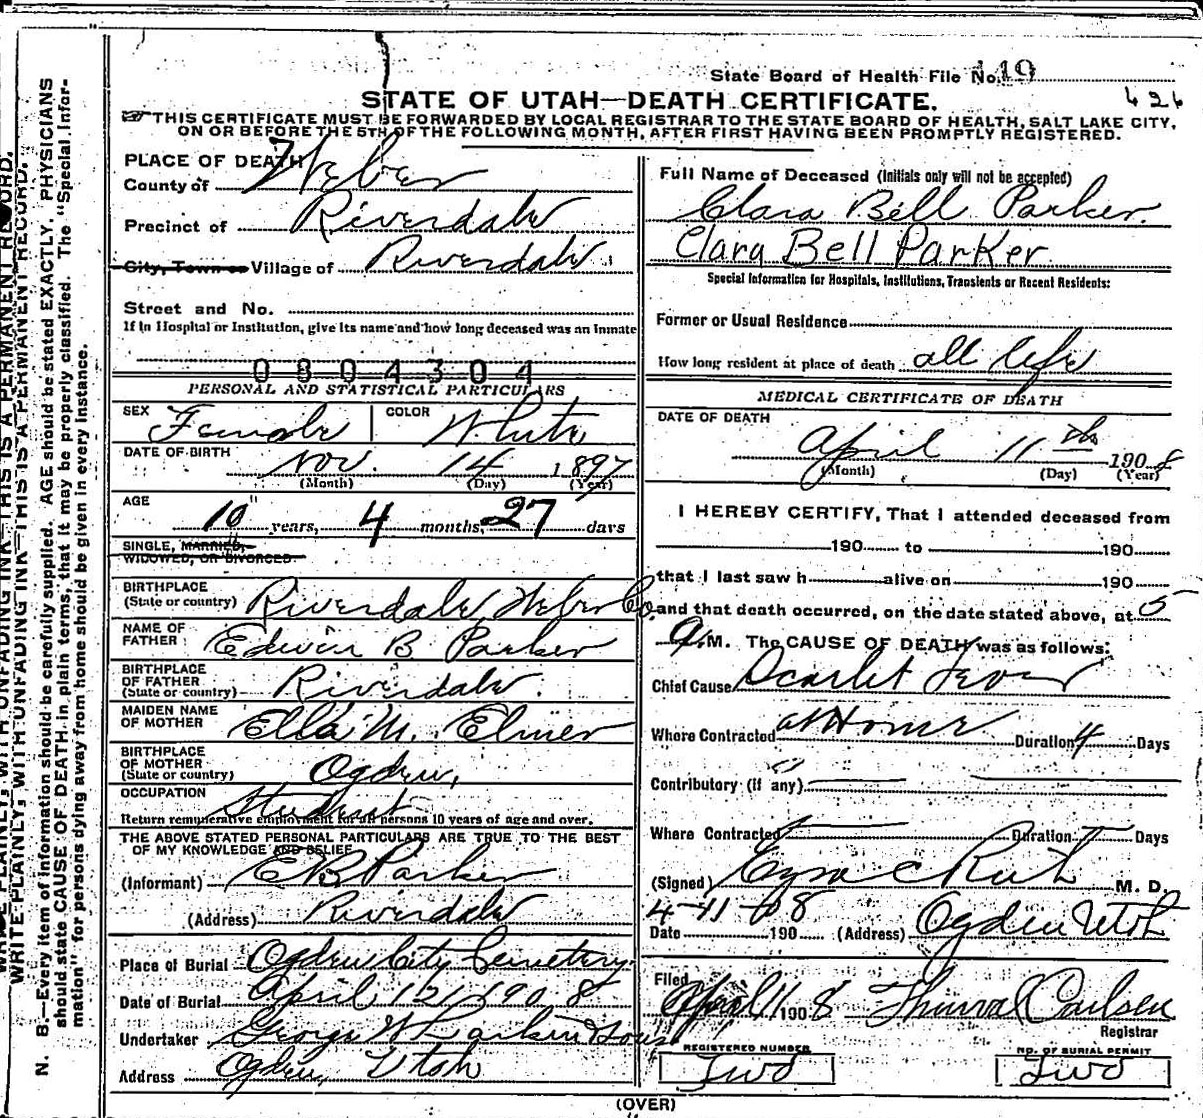 State Board of Health File No. 19
426
STATE OF UTAH—DEATH CERTIFICATE.
THIS CERTIFICATE MUST BE FORWARDED BY LOCAL REGISTRAR TO THE STATE BOARD OF HEALTH, SALT LAKE CITY,
ON OR BEFORE THE 5TH OF THE FOLLOWING MONTH, AFTER FIRST HAVING BEEN PROMPTLY REGISTERED.
PLACE OF DEATH
County of Weber
Precinct of Riverdale
City, Town or Village of Riverdale
Street and No.
If in Hospital or Institution, give its name and how long deceased was an inmate
0804304
PERSONAL AND STATISTICAL PARTICULARS
SEX Female COLOR White
DATE OF BIRTH Nov. 14 1897
(Month) (Day) (Year)
AGE
10 years, 4 months, 27 days
SINGLE, MARRIED,
WIDOWED, OR DIVORCED
BIRTHPLACE
(State or country) Riverdale Weber Co.
NAME OF
FATHER Edwin B. Parker
BIRTHPLACE
OF FATHER
(State or country) Riverdale.
MAIDEN NAME
OF MOTHER Ella M. Elmer
BIRTHPLACE
OF MOTHER
(State or country) Ogden,
OCCUPATION Student
Return remunerative employment for all persons 10 years of age and over.
THE ABOVE STATED PERSONAL PARTICULARS ARE TRUE TO THE BEST
OF MY KNOWLEDGE AND BELIEF
(Informant) E B Parker
(Address) Riverdale
Place of Burial Ogden City Cemetery
Date of Burial April 12, 1908
Undertaker George W Larkin Sons
Address Ogden, Utah
Full Name of Deceased (Initials only will not be accepted)
Clara Bell Parker.
Clara Bell Parker
Special Information for Hospitals, Institutions, Transients or Recent Residents:
Former or Usual Residence
How long resident at place of death all life
MEDICAL CERTIFICATE OF DEATH
DATE OF DEATH
April 11th 1908
(Month) (Day) (Year)
I HEREBY CERTIFY, That I attended deceased from
190 to 190
that I last saw h alive on 190
and that death occurred, on the date stated above, at 5
A.M. The CAUSE OF DEATH was as follows:
Chief Cause Scarlet Fever
Where Contracted at Home Duration 4 Days
Contributory (if any)
Where Contracted Duration Days
(Signed) Ezra C Rich M. D.
4-11-08
Date 190 (Address) Ogden Utah
Filed
April 11 1908 Carlsen
Registrar
REGISTERED NUMBER
Two
NO. OF BURIAL PERMIT
Two
(OVER)
WRITE PLAINLY, WITH UNFADING INK—THIS IS A PERMANENT RECORD.
WRITE PLAINLY, WITH UNFADING INK—THIS IS A PERMANENT RECORD.
N. B.—Every item of information should be carefully supplied. AGE should be stated EXACTLY. PHYSICIANS
should state CAUSE OF DEATH in plain terms, that it may be properly classified. The "Special Infor-
mation" for persons dying away from home should be given in every instance.